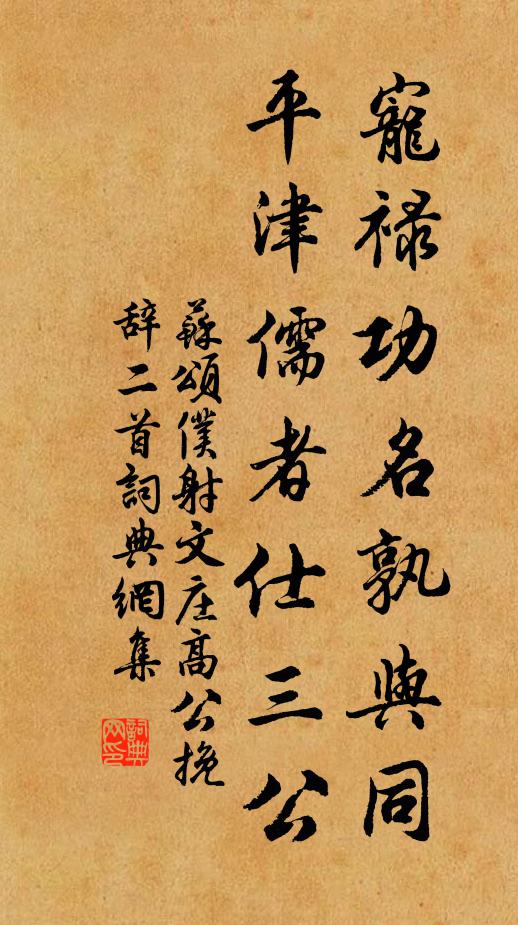 寵祿功名孰與同
平津儒者仕三公
蘇頌僕射文庄高公挽
辞二首詞典網集
詞典网印